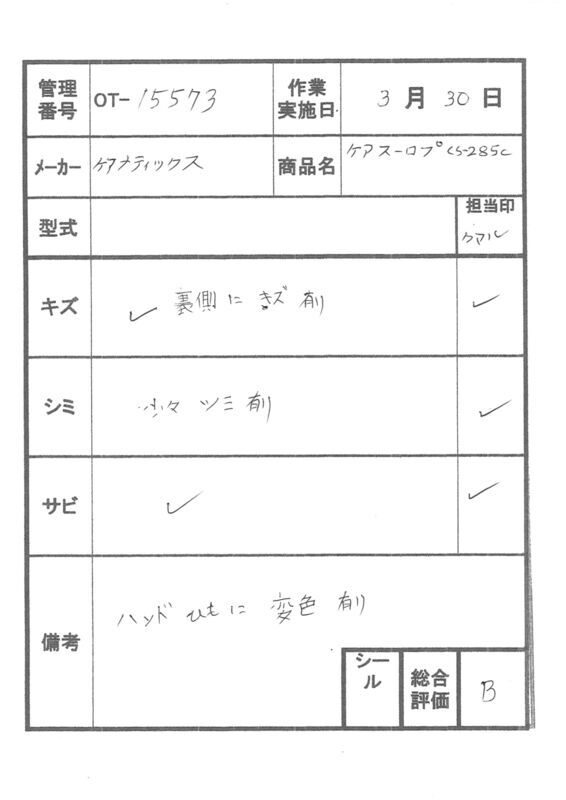 管理番号 OT-15573 作業実施日 3月30日
メーカー ケアメディックス 商品名 ケアスロープCS-285C
型式 担当印
ケアル
キズ ✓ 裏側にキズ有り ✓
シミ 少々シミ有り ✓
サビ ✓ ✓
備考 ハンドひもに変色有り
シール 総合評価 B